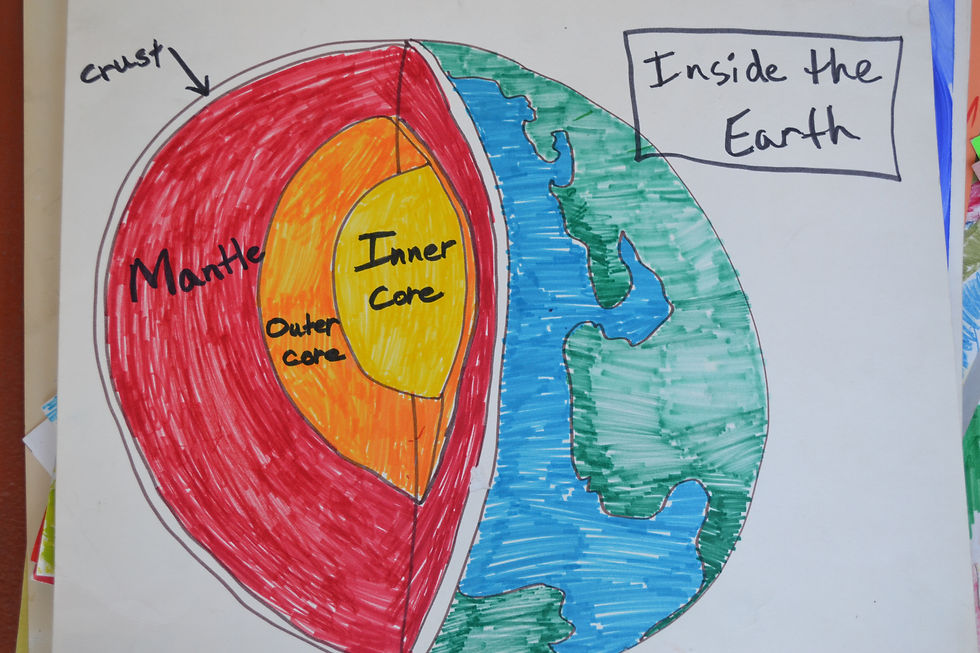 crust
Inside the
Earth
Mantle
Inner
Core
Outer
core